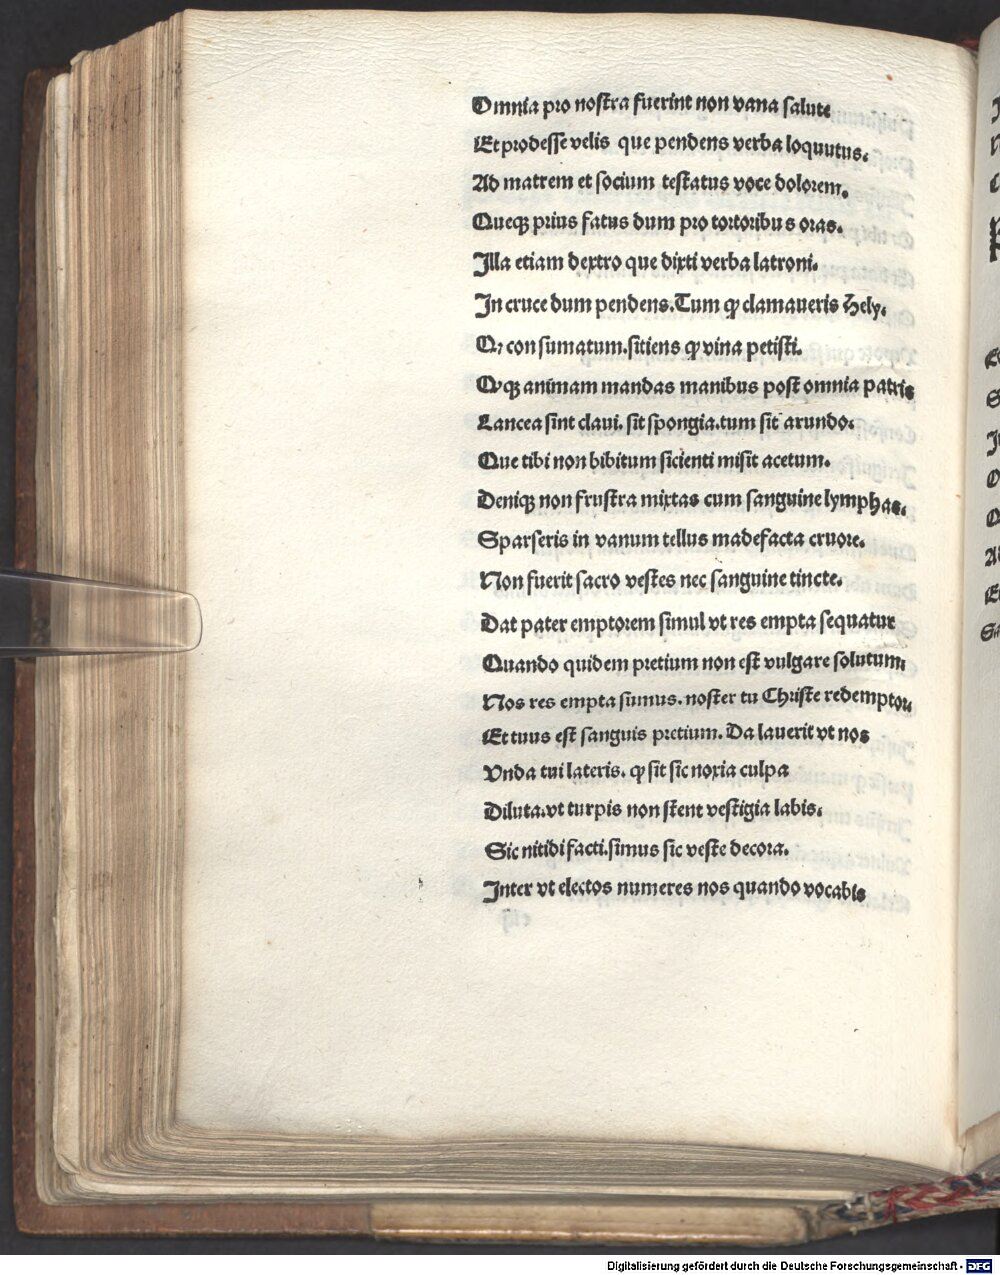 Omnia pro nostra fuerint non vana salute
Et prodesse velis que pendens verba loquutus.
Ad matrem et socium testatus voce dolorem.
Queqꝫ prius fatus dum pro tortoribus oras.
Illa etiam dextro que dixti verba latroni.
In cruce dum pendens. Tum ꝙ clamaueris Hely.
Qꝫ consumatum. sitiens ꝙ vina petisti.
Qꝫqꝫ animam mandas manibus post omnia patris
Lancea sint claui. sit spongia. tum sit arundo.
Que tibi non bibitum sicienti misit acetum.
Deniqꝫ non frustra mixtas cum sanguine lymphas.
Sparseris in vanum tellus madefacta cruore.
Non fuerit sacro vestes nec sanguine tincte.
Dat pater emptorem simul vt res empta sequatur
Quando quidem pretium non est vulgare solutum.
Nos res empta sumus. noster tu Christe redemptor.
Et tuus est sanguis pretium. Da lauerit vt nos
Vnda tui lateris. ꝙ sit sic noxia culpa
Diluta. vt turpis non stent vestigia labis.
Sic nitidi facti. simus sic veste decora.
Inter vt electos numeres nos quando vocabis
Digitalisierung gefördert durch die Deutsche Forschungsgemeinschaft - DFG